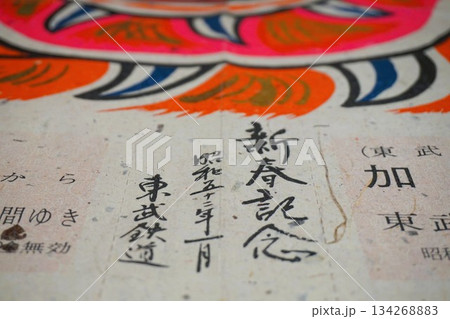 (東武
加
東武
昭和
新春記念
昭和五十三年一月
東武鉄道
から
間ゆき
無効
pixta.jp - 134268883